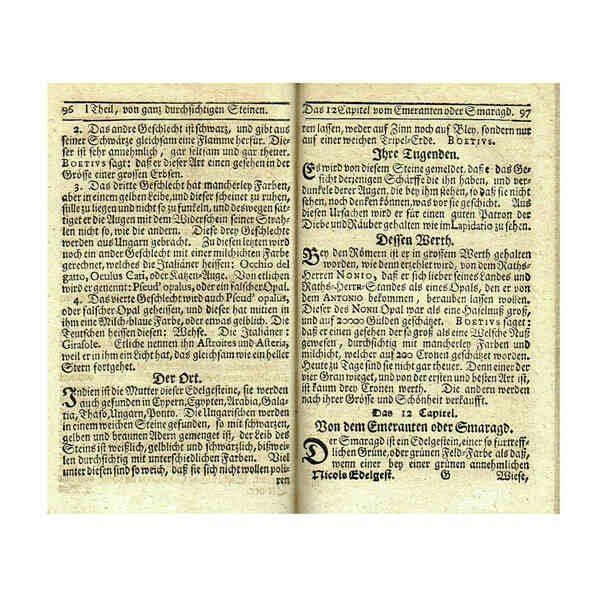 96 I Theil, von gantz durchsichtigen Steinen.
2. Das andre Geschlecht ist schwartz, und gibt aus
seiner Schwärtze gleichsam eine Flamme herfür. Die-
ser ist sehr annehmlich, gar seltsam und gar theuer.
BOETIUS sagt: daß er dieser Art einen gesehen in der
Grösse einer grossen Erbsen.
3. Das dritte Geschlecht hat mancherley Farben,
aber in einem gelben Leibe, und dieser scheinet zu ruhen,
stille zu liegen und nicht so zu funckeln, und deswegen sät-
tiget er die Augen mit dem Widerschein seiner Strah-
len nicht so, wie die andern. Diese drey Geschlecht
werden aus Ungarn gebracht. Zu diesen letzten wird
noch ein ander Geschlecht mit einer milchichten Farbe
gerechnet, welches die Italiäner heissen: Occhio del
gatto, Oculus Cati, oder Katzen-Auge. Von etlichen
wird er genennt: Pseud' opalus, oder ein falscher Opal.
4. Das vierte Geschlecht wird auch Pseud' opalus,
oder falscher Opal geheissen, und dieser hat mitten in
ihm eine Milch-blaue Farbe, oder etwas gelblich. Die
Teutschen heissen diesen: Wehse. Die Italiäner:
Girasole. Etliche nennen ihn Astroites und Asteria,
weil er in ihm ein Licht hat, das gleichsam wie ein heller
Stern fortgehet.
Der Ort.
Indien ist die Mutter dieser Edelgesteine, sie werden
auch gefunden in Cypern, Egypten, Arabia, Gala-
tia, Thaso, Ungarn, Ponto. Die Ungarischen werden
in einem weichen Steine gefunden, so mit schwartzen,
gelben und braunen Adern gemenget ist, der Leib des
Steins ist weißlich, gelblicht und schwärtzlich, bißwei-
len durchsichtig mit unterschiedlichen Farben. Viel
unter diesen sind so weich, daß sie sich nicht wollen poli-
ren
Das 12 Capitel vom Emeranten oder Smaragd. 97
ren lassen, weder auf Zinn noch auf Bley, sondern nur
auf einer weichen Tripel-Erde. BOETIUS.
Ihre Tugenden.
Es wird von diesem Steine gemeldet, daß e das Ge-
sicht derjenigen Schärffe die ihn haben, und ver-
dunkele derer Augen, die bey ihm stehen, so daß sie nicht
sehen, noch dencken können, was vor sie geschicht. Aus
diesen Ursachen wird er für einen guten Patron der
Diebe und Räuber gehalten wie im Lapidario zu sehen.
Dessen Werth.
Bey den Römern ist er in grossem Werth gehalten
worden, wie denn erzehlet wird, von dem Raths-
Herren NONIO, daß er sich lieber seines Landes und
Raths-Herrn-Standes als eines Opals, den er von
dem ANTONIO bekommen, berauben lassen wollen.
Dieser des NONII Opal war als eine Haselnuß groß,
und auf 20000 Gülden geschätzet. BOETIUS saget:
daß er einen gesehen der so groß als eine Welsche Nuß
gewesen, durchsichtig mit mancherley Farben und
milchicht, welcher auf 200 Cronen geschätzet worden.
Heute zu Tage sind sie nicht gar theuer. Denn einer der
vier Gran wieget, und von der ersten und besten Art ist,
ist kaum drey Cronen werth. Die andern werden
nach ihrer Grösse und Schönheit verkaufft.
Das 12 Capitel.
Von dem Emeranten oder Smaragd.
Der Smaragd ist ein Edelgestein, einer so fürtreff-
lichen Grüne, oder grünen Feld-Farbe als daß,
wenn einer bey einer grünen annehmlichen
Nicols Edelgest. G Wiese,